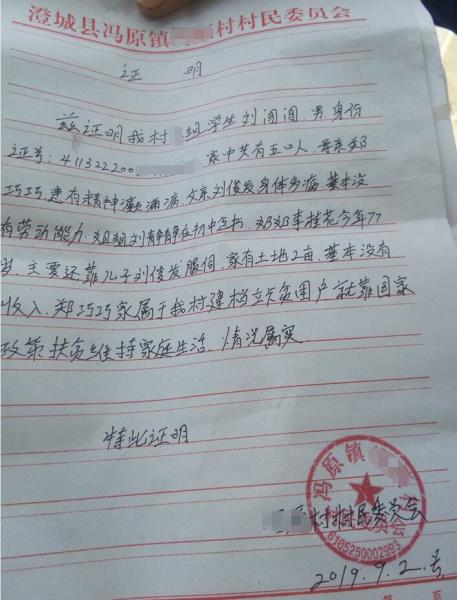 澄城县冯原镇 村村民委员会
证 明
兹证明我村 组学生刘闯闯，男，身份
证号：411322200. 家中共有五口人，母亲郑
巧巧，患有精神 病，父亲刘俊发身体多病，基本没
有劳动能力，姐姐刘 在初中念书，奶奶李桂花今年77
岁，主要还靠儿子刘俊发服侍，家有土地2亩，基本没有
收入，郑巧巧家属于我村建档立卡贫困户就靠国家
政策扶贫维持家庭生活，情况属实．
特此证明
冯原镇
村村民委员会
6105250002993
2019.9.2.号
第 页